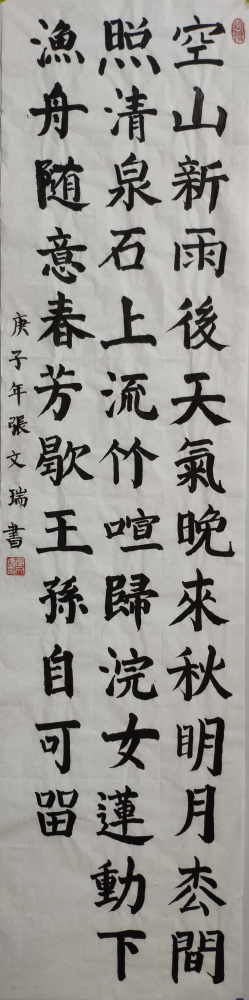 空山新雨後天氣晚來秋明月枩間
照清泉石上流竹喧歸浣女蓮動下
漁舟随意春芳歇王孫自可留
庚子年張文瑞書